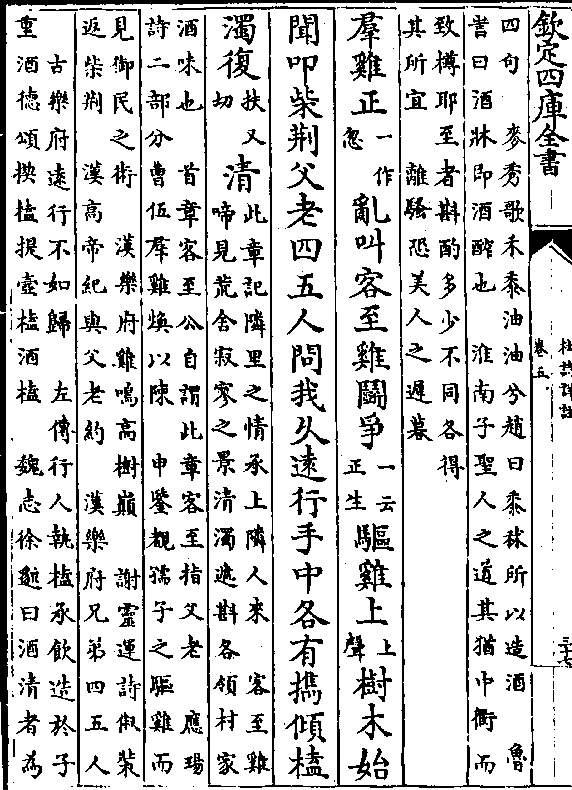 欽定四庫全書
杜詩詳註
卷五
三十七
四句 麥秀歌禾黍油油兮趙曰黍秫所以造酒 魯
訔曰酒牀即酒醡也 淮南子聖人之道其猶中衢而
致樽耶至者斟酌多少不同各得
其所宜 離騷恐美人之遲暮
羣雞正一作忽亂叫客至雞鬭爭一云正生驅雞上上聲樹木始
聞叩柴荆父老四五人問我乆遠行手中各有攜傾榼
濁復扶又切清此章記隣里之情承上隣人來 客至雞
啼見荒舍寂寥之景清濁遞斟各領村家
酒味也 首章客至公自謂此章客至指父老 應瑒
詩二部分曹伍羣雞煥以陳 申鑒覩孺子之驅雞而
見御民之術 漢樂府雞鳴高樹巔 謝靈運詩俶裝
返柴荆 漢高帝紀與父老約 漢樂府兄弟四五人
古樂府遠行不如歸 左傳行人執榼承飲造於子
重酒德頌挈榼提壺榼酒榼 魏志徐邈曰酒清者為